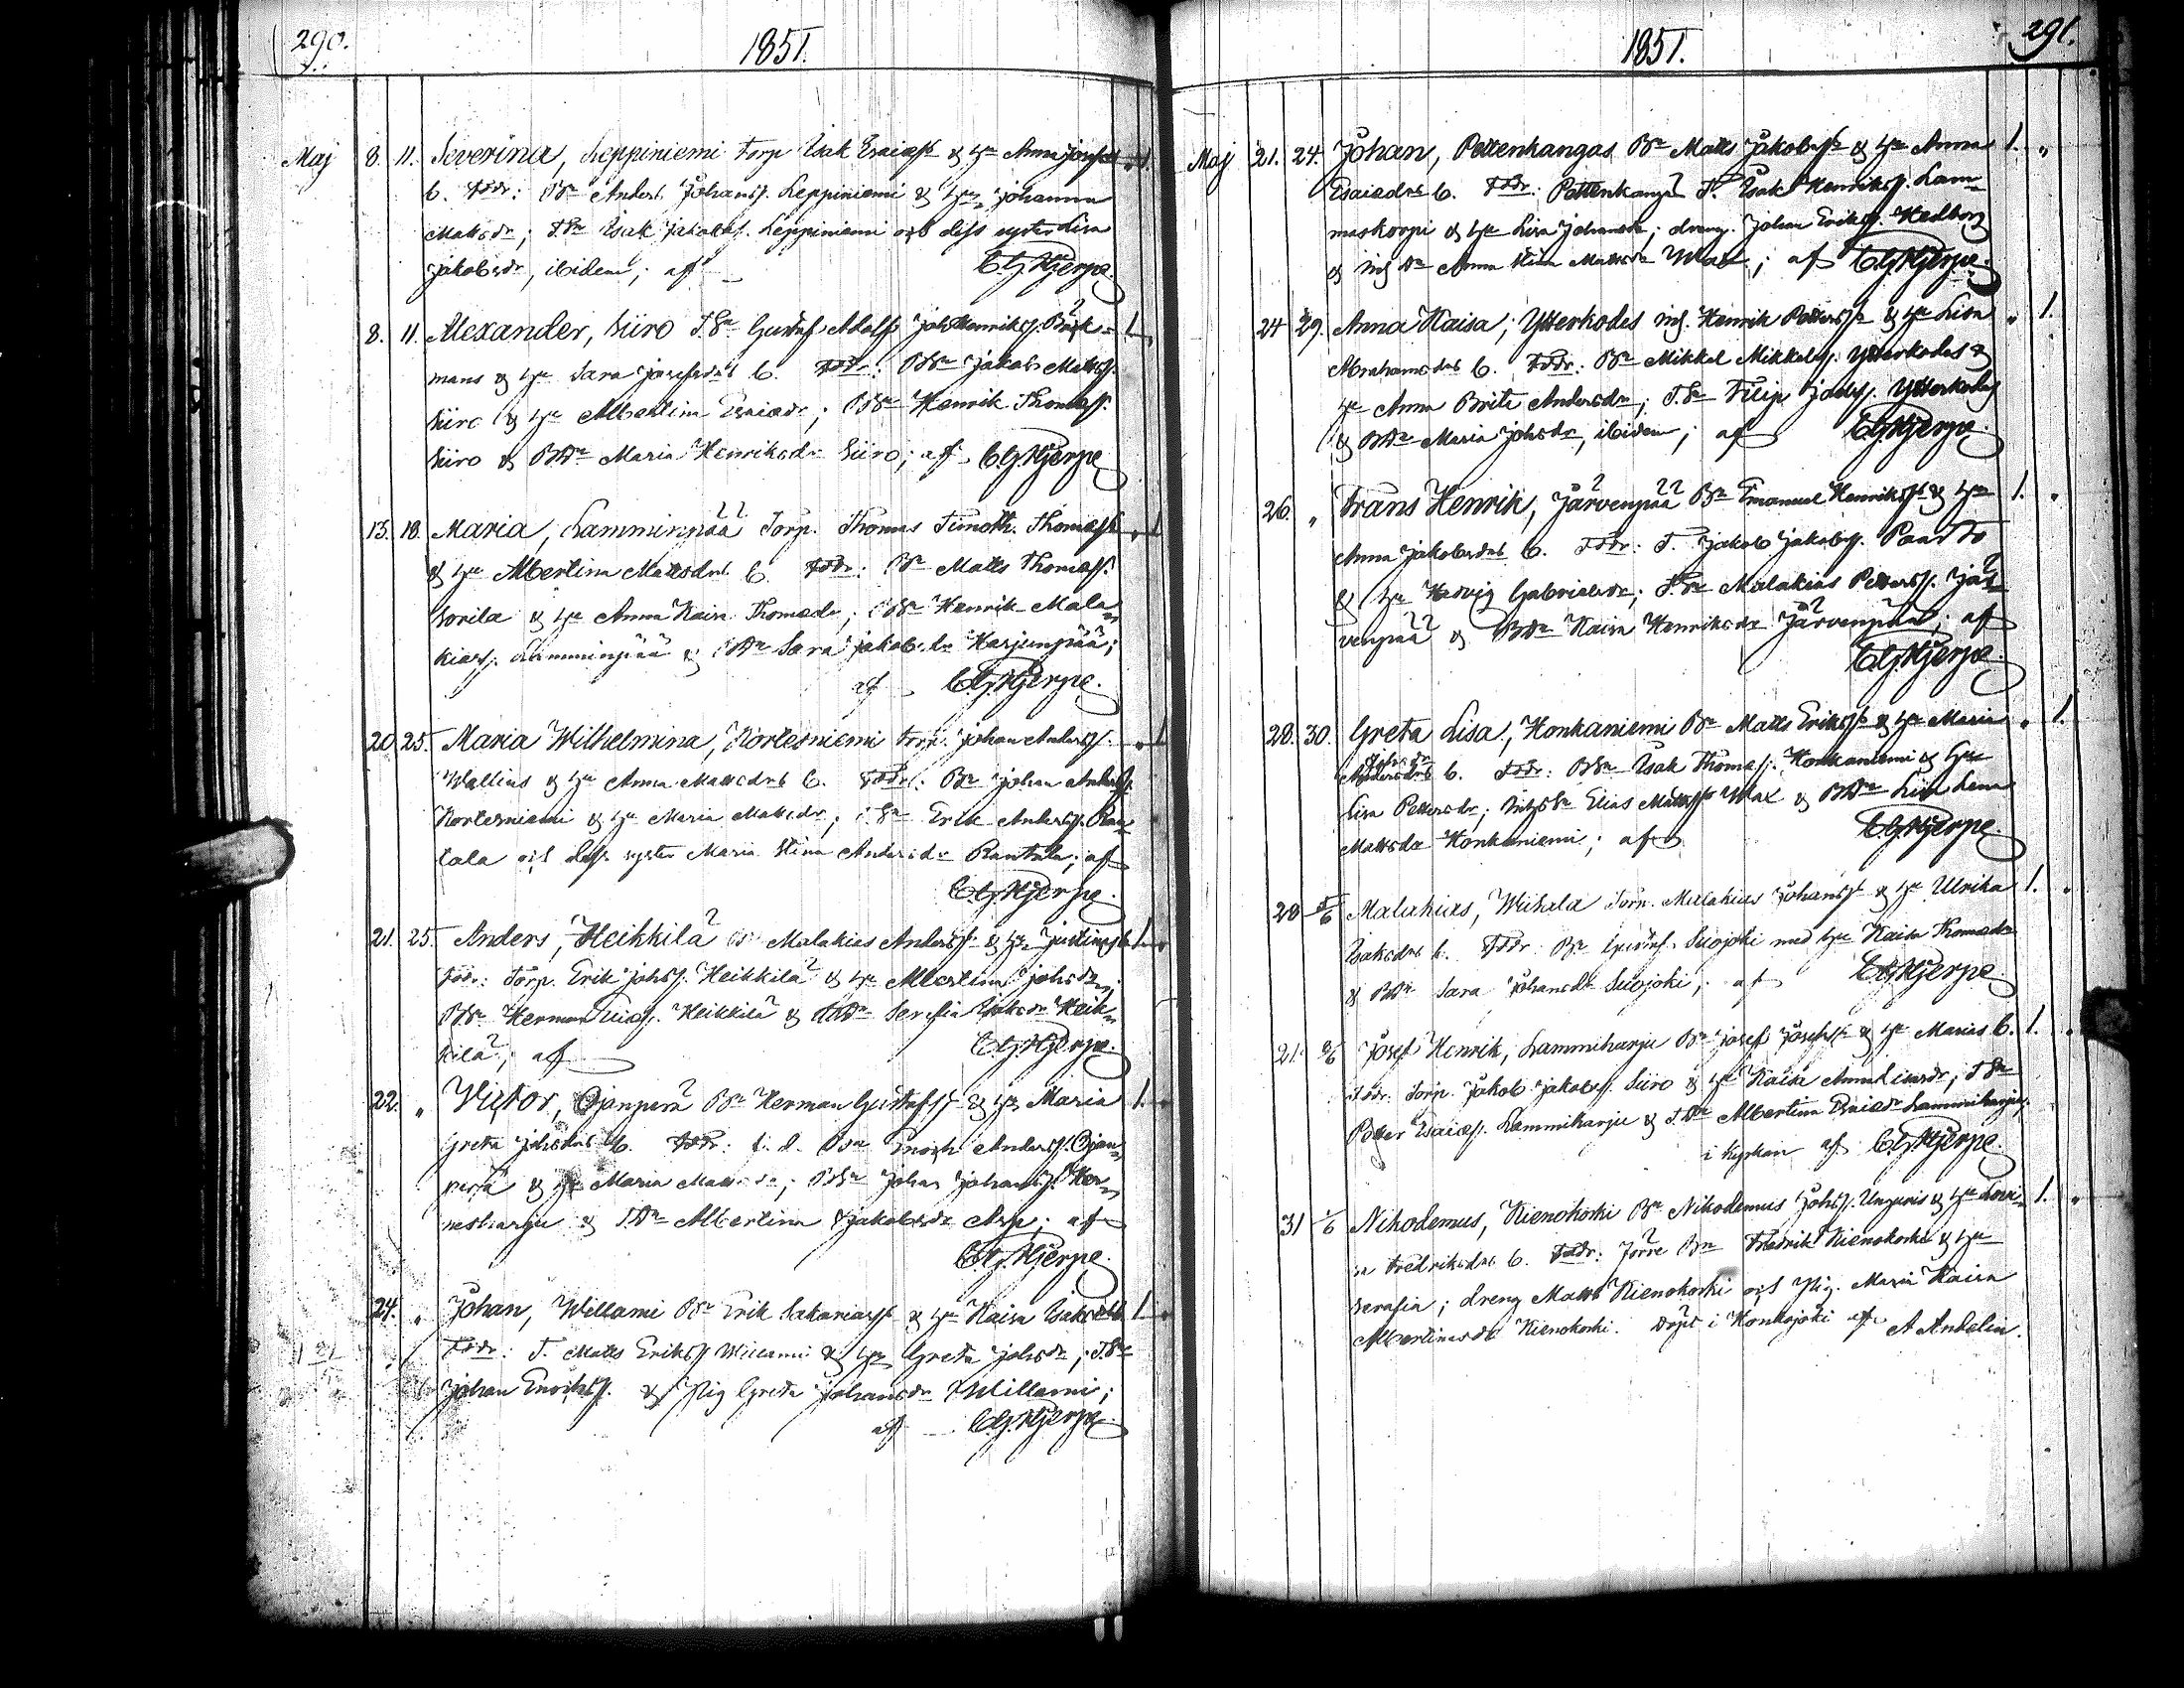 290.
1851.
Maj 8. 11. Severina, Leppiniemi Torp. Isak Esaiass. & Hu Anna Josefsd
b. Fddr: Bn Anders Johanss. Leppiniemi & Hu Johanna
Mattsdr; T.Sn Isak Jakobss. Leppiniemi och dess syster Lisa
Jakobsdr, ibidem; af CGHjerpe.
8. 11. Alexander, Siiro T.Sn Gustaf Adolf Joh Henrikss. Bäck- 1.
mans & Hu Sara Josefsdrs b. Fddr: BSn Jakob Mattss.
Siiro & Hu Albertina Esaiadr; BSn Henrik Thomass.
Siiro & BDr Maria Henriksdr Siiro; af CGHjerpe
13. 18. Maria, Lamminpää Torp. Thomas Timoth. Thomass. 1
& Hu Albertina Mattsdrs b. Fddr: Bn Matts Thomass.
Sorila & Hu Anna Kaisa Thomadr; BSn Henrik Mala-
kiass. Lamminpää & BDr Sara Jakobsdr Harjunpää;
af CGHjerpe.
20. 25. Maria Wilhelmina, Kortesniemi Torp. Johan Anderss. 1
Wallius & Hu Anna Mattsdrs b. Fddr: Bn Johan Anderss.
Kortesniemi & Hu Maria Mattsdr; Sn Erik Anderss. Ran-
tala och dess syster Maria Stina Andersdr Rantala; af
CGHjerpe.
21. 25. Anders, Heikkilä Bn Malakias Anderss. & Hu Justinas b. 1.
Fddr: Torp. Erik Johss. Heikkilä & Hu Albertina Johsdr;
BSn Herman Heikkilä & Serafia Isaksdr Heik-
kilä; af CGHjerpe.
22. " Victor, Ojanperä Bn Herman Gustafss. & Hu Maria 1.
Greta Johsdrs b. Fddr: Bn Enoch Anderss. Ojan-
perä & Hu Maria Mattsdr; BSn Johan Johanss. Her-
nesharju & T.Dr Albertina Jakobsdr Asp; af
CGHjerpe.
24. " Johan, Willami Bn Erik Sakariass. & Hu Kaisa Isaksd b. 1.
Fddr: T. Matts Erikss. Willami & Hu Greta Johsdr; T.Sn
Johan Enochss. & Pig Greta Johansdr Willami;
af CGHjerpe.
1851.
291.
Maj 21. 24. Johan, Pettenkangas Bn Matts Jakobss. & Hu Anna 1. "
Esaiadrs b. Fddr: Pettenkangas T. Isak Henrikss. Lam-
maskorpi & Hu Lisa Johansdr; dreng. Johan Erikss. Hedborg
& Inh Dr Anna Stina Mattsdr Wax; af CGHjerpe.
24 29. Anna Kaisa, Ytterkodes inh. Henrik Petterss. & Hu Lisa " 1.
Abrahamsdrs b. Fddr: Bn Mikkel Mikkelss. Ytterkodes &
Hu Anna Brita Andersdr; T.Sn Filip Josefss. Ytterkodes
& BDr Maria Johsdr, ibidem; af CGHjerpe.
26. " Frans Henrik, Järvenpää Bn Emanuel Henrikss. & Hu 1. "
Anna Jakobsdrs b. Fddr: T. Jakob Jakobss. Paarto
& Hu Hedvig Gabrielsdr; T.Sn Malakias Petterss. Jär-
venpää & BDr Kaisa Henriksdr Järvenpää; af
CGHjerpe.
28. 30. Greta Lisa, Honkaniemi Bn Matts Erikss. & Hu Maria " 1.
Andersdrs b. Fddr: BSn Isak Thomass. Honkaniemi & Hu
Lisa Pettersdr; Inh Sn Elias Mattss. Wax & BDr Lisa Lena
Mattsdr Honkaniemi; af CGHjerpe.
28 1/6 Malakias, Wihala Torp. Malakias Johanss. & Hu Ulrika 1. "
Isaksdrs b. Fddr Bn Gustaf Suojoki med Hu Kaisa Thomadr
& BDr Sara Johansdr Suojoki; af CGHjerpe.
21. 8/6 Josef Henrik, Lammiharju Bn Josef Josefss. & Hu Marias b. 1. "
Fddr: Torp. Jakob Jakobss. Siiro & Hu Kaisa Annalisasdr; T.Sn
Petter Esaiass. Lammiharju & T.Dr Albertina Esaiadr Lammiharju,
i kyrkan af CGHjerpe.
31 1/6 Nikodemus, Kienokoski Bn Nikodemus Johss. Unguris & Hu Lovi- 1. "
sa Fredriksdrs b. Fddr: Förre Bn Fredrik Kienokoski & Hu
Serafia; dreng Matts Kienokoski och Pig. Maria Kaisa
Albertinasdr Kienokoski. Döpt i Honkajoki af A Andelin.